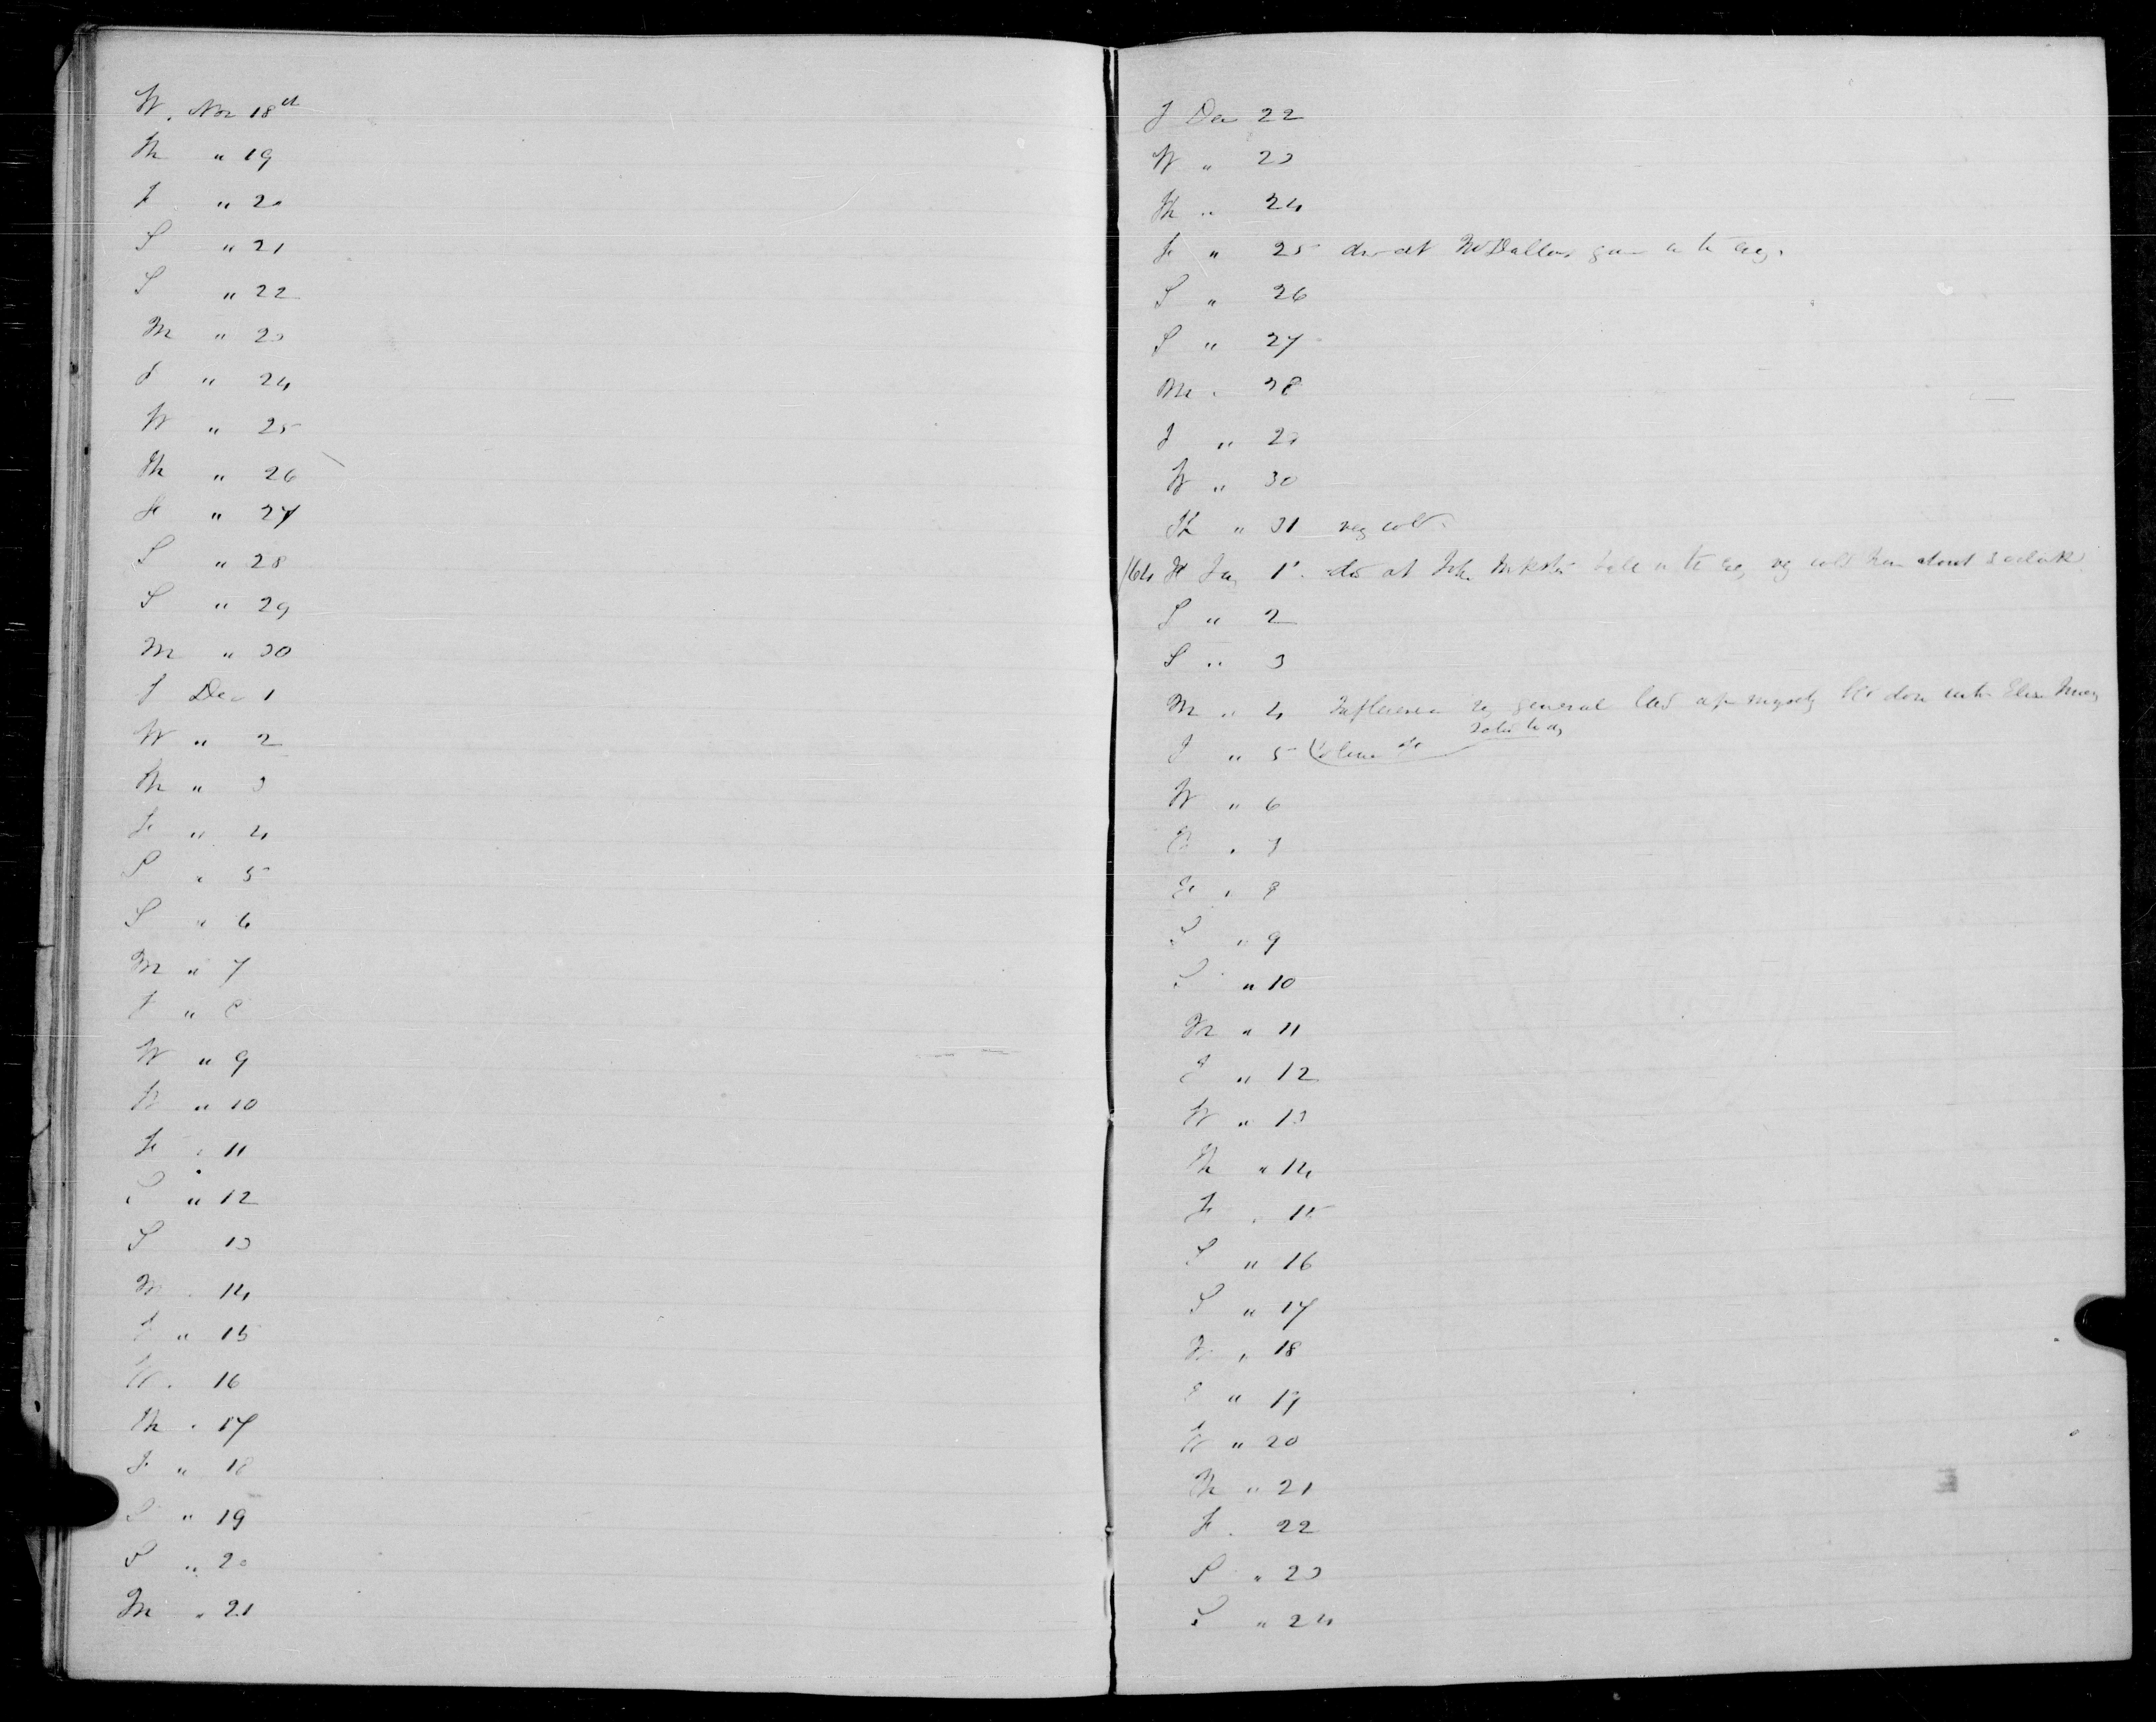 W. Nov 18th
Th " 19
F " 20
S " 21
S " 22
M " 23
T " 24
W " 25
Th " 26
Fr " 27
S " 28
S " 29
M " 30
T Dec 1
W " 2
Th " 3
Fr " 4
S " 5
S " 6
M " 7
T " 8
W " 9
Th " 10
Fr " 11
S " 12
S 13
M " 14
T " 15
W " 16
Th " 17
F " 18
S " 19
S " 20
M " 21
T Dec 22
W " 23
Th " 24
Fr " 25 din at
S " 26
S " 27
M " 28
T " 29
W " 30
Th " 31 very cold
/64 Fr Jan 1st din at John cold about 3 oclock
S " 2
S " 3
M " 4 Influenza very general
T " 5
W " 6
Th " 7
Fr " 8
S " 9
S " 10
M " 11
T " 12
W " 13
Th " 14
Fr " 15
S " 16
S " 17
M " 18
T " 19
W " 20
Th " 21
Fr " 22
S " 23
S " 24